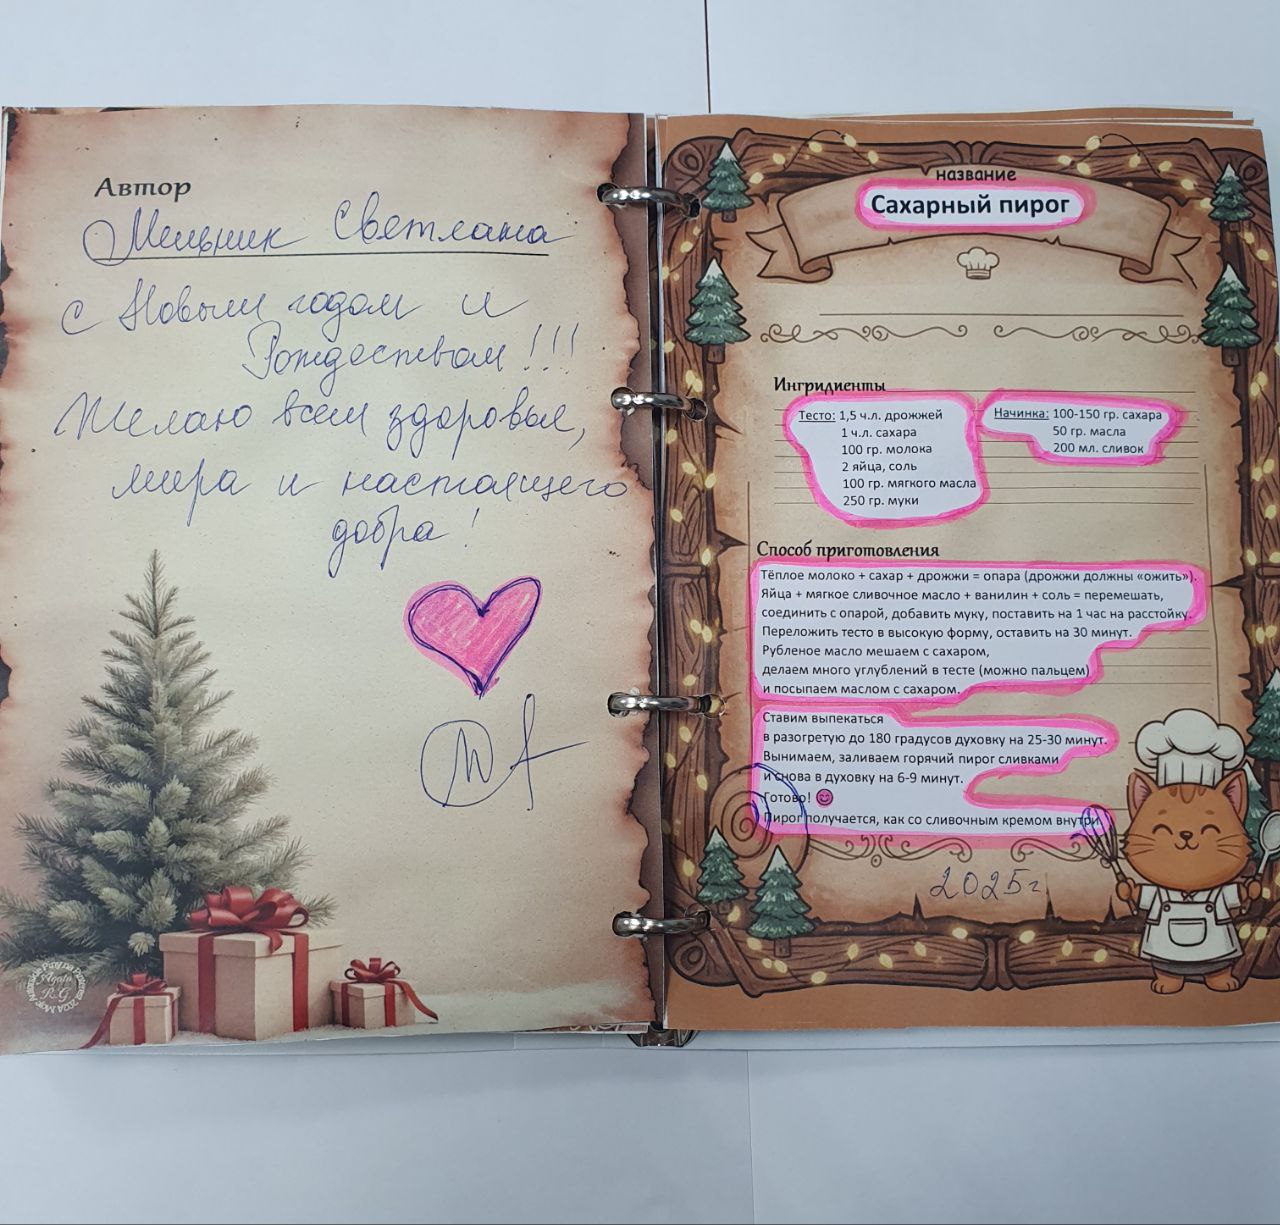 Автор
Мельник Светлана
с Новым годом и
Рождеством!!!
Желаю всем здоровья,
мира и настоящего
добра!
название
Сахарный пирог
Ингридиенты
Тесто: 1,5 ч.л. дрожжей
1 ч.л. сахара
100 гр. молока
2 яйца, соль
100 гр. мягкого масла
250 гр. муки
Начинка: 100-150 гр. сахара
50 гр. масла
200 мл. сливок
Способ приготовления
Тёплое молоко + сахар + дрожжи = опара (дрожжи должны «ожить»).
Яйца + мягкое сливочное масло + ванилин + соль = перемешать,
соединить с опарой, добавить муку, поставить на 1 час на расстойку.
Переложить тесто в высокую форму, оставить на 30 минут.
Рубленое масло мешаем с сахаром,
делаем много углублений в тесте (можно пальцем)
и посыпаем маслом с сахаром.
Ставим выпекаться
в разогретую до 180 градусов духовку на 25-30 минут.
Вынимаем, заливаем горячий пирог сливками
и снова в духовку на 6-9 минут.
Готово! 😊
Пирог получается, как со сливочным кремом внутри.
2025г